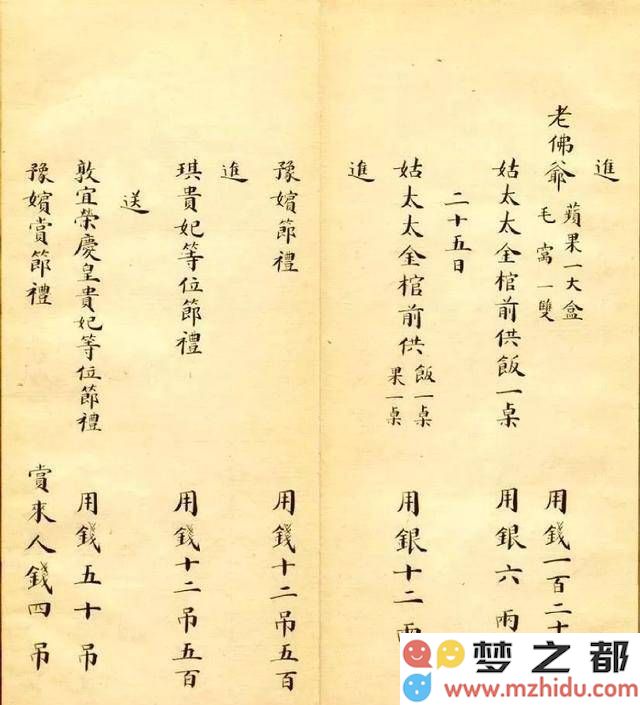 進
老佛爺 蘋果一大盒 毛窩一雙 用錢一百二十
姑太太全棺前供飯一桌 用銀六兩
二十五日
進
姑太太全棺前供 飯一桌 果一桌 用銀十二
豫嬪節禮 用錢十二吊五百
進
琪貴妃等位節禮 用錢十二吊五百
送
敦宜榮慶皇貴妃等位節禮 用錢五十吊
豫嬪賞節禮 賞來人錢四吊
梦之都
www.mzhidu.com